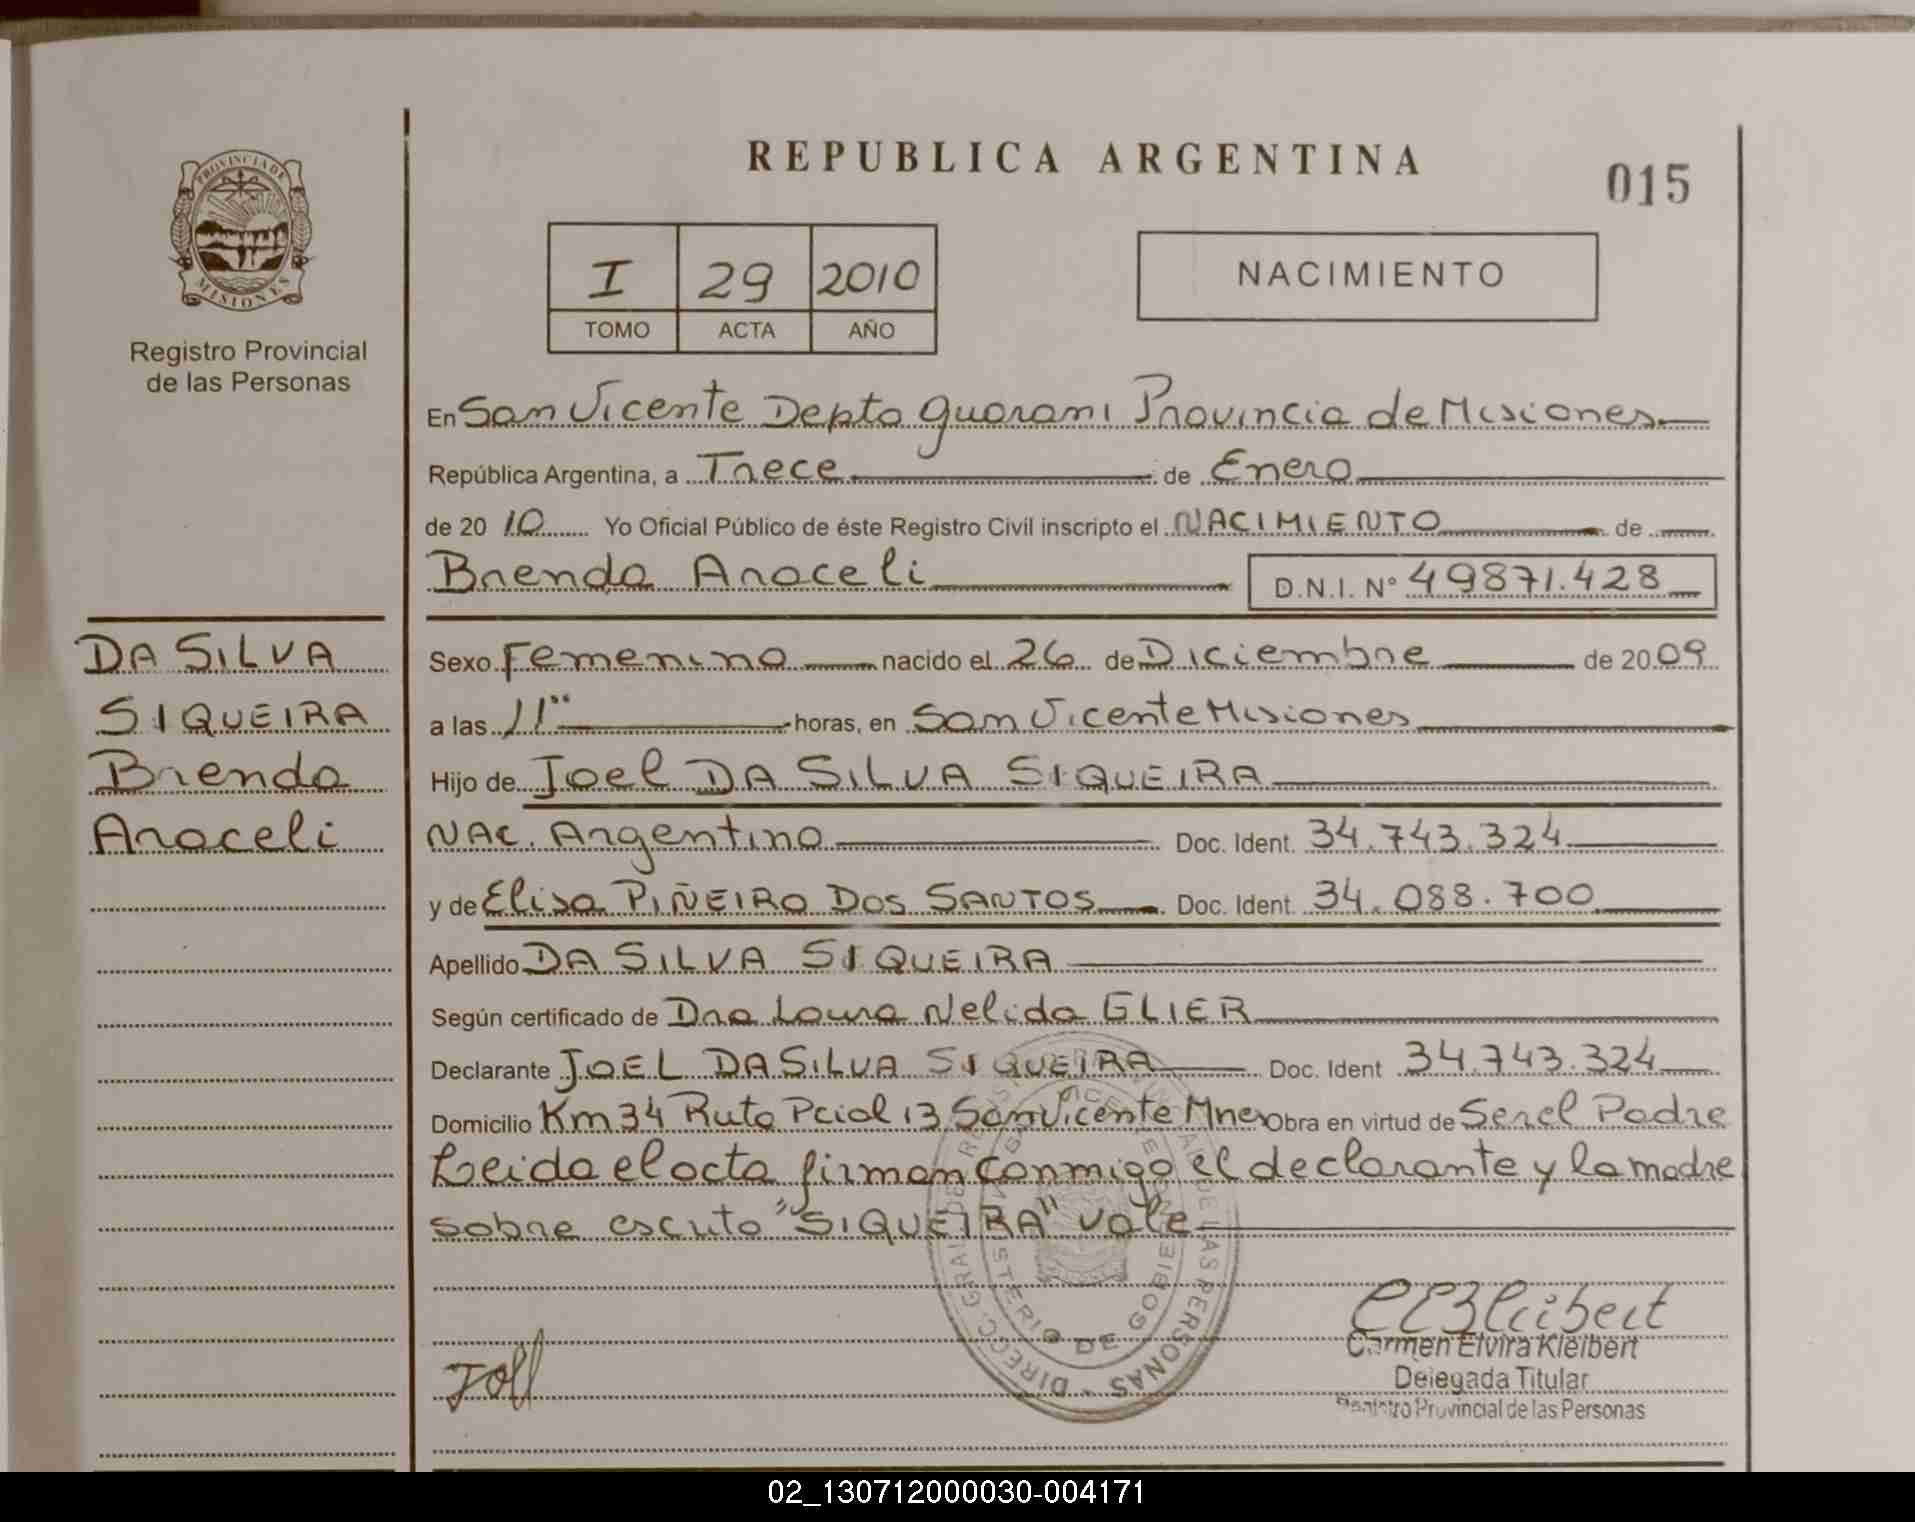 PROVINCIA DE
MISIONES
Registro Provincial
de las Personas
REPUBLICA ARGENTINA
015
I 29 2010
TOMO ACTA AÑO
NACIMIENTO
En San Vicente Depto Guarani Provincia de Misiones
República Argentina, a Trece de Enero
de 20 10 Yo Oficial Público de éste Registro Civil inscripto el NACIMIENTO de
Brenda Araceli D.N.I. N° 49871.428
DA SILVA
SIQUEIRA
Brenda
Araceli
Sexo Femenino nacido el 26 de Diciembre de 20 09
a las 11°° horas, en San Vicente Misiones
Hijo de Joel DA SILVA SIQUEIRA
NAC. Argentino Doc. Ident. 34.743.324
y de Elisa PIÑEIRO DOS SANTOS Doc. Ident. 34.088.700
Apellido DA SILVA SIQUEIRA
Según certificado de Dra Laura Nelida GLIER
Declarante JOEL DA SILVA SIQUEIRA Doc. Ident 34.743.324
Domicilio Km 34 Ruta Pcial 13 San Vicente Mnes Obra en virtud de Ser el Padre
Leida el acta firman conmigo el declarante y la madre
sobre escrito "SIQUEIRA" vale
MINISTERIO DE GOBIERNO
DIRECC. GRAL DE
DE LAS PERSONAS
Carmen Elvira Kleibert
Delegada Titular
Registro Provincial de las Personas
02_130712000030-004171